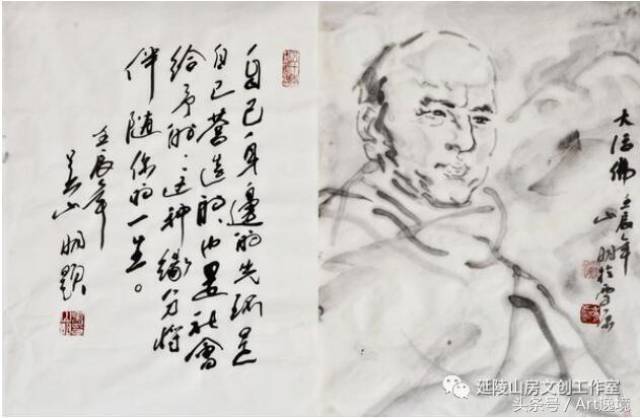 自己身邊的光环是
自己营造的，也是社會
给予的，这种缘分将
伴随你的一生。
壬辰年
吴山明题
大德佛
壬辰年
山明於
延陵山房文创工作室
头条号 / Art